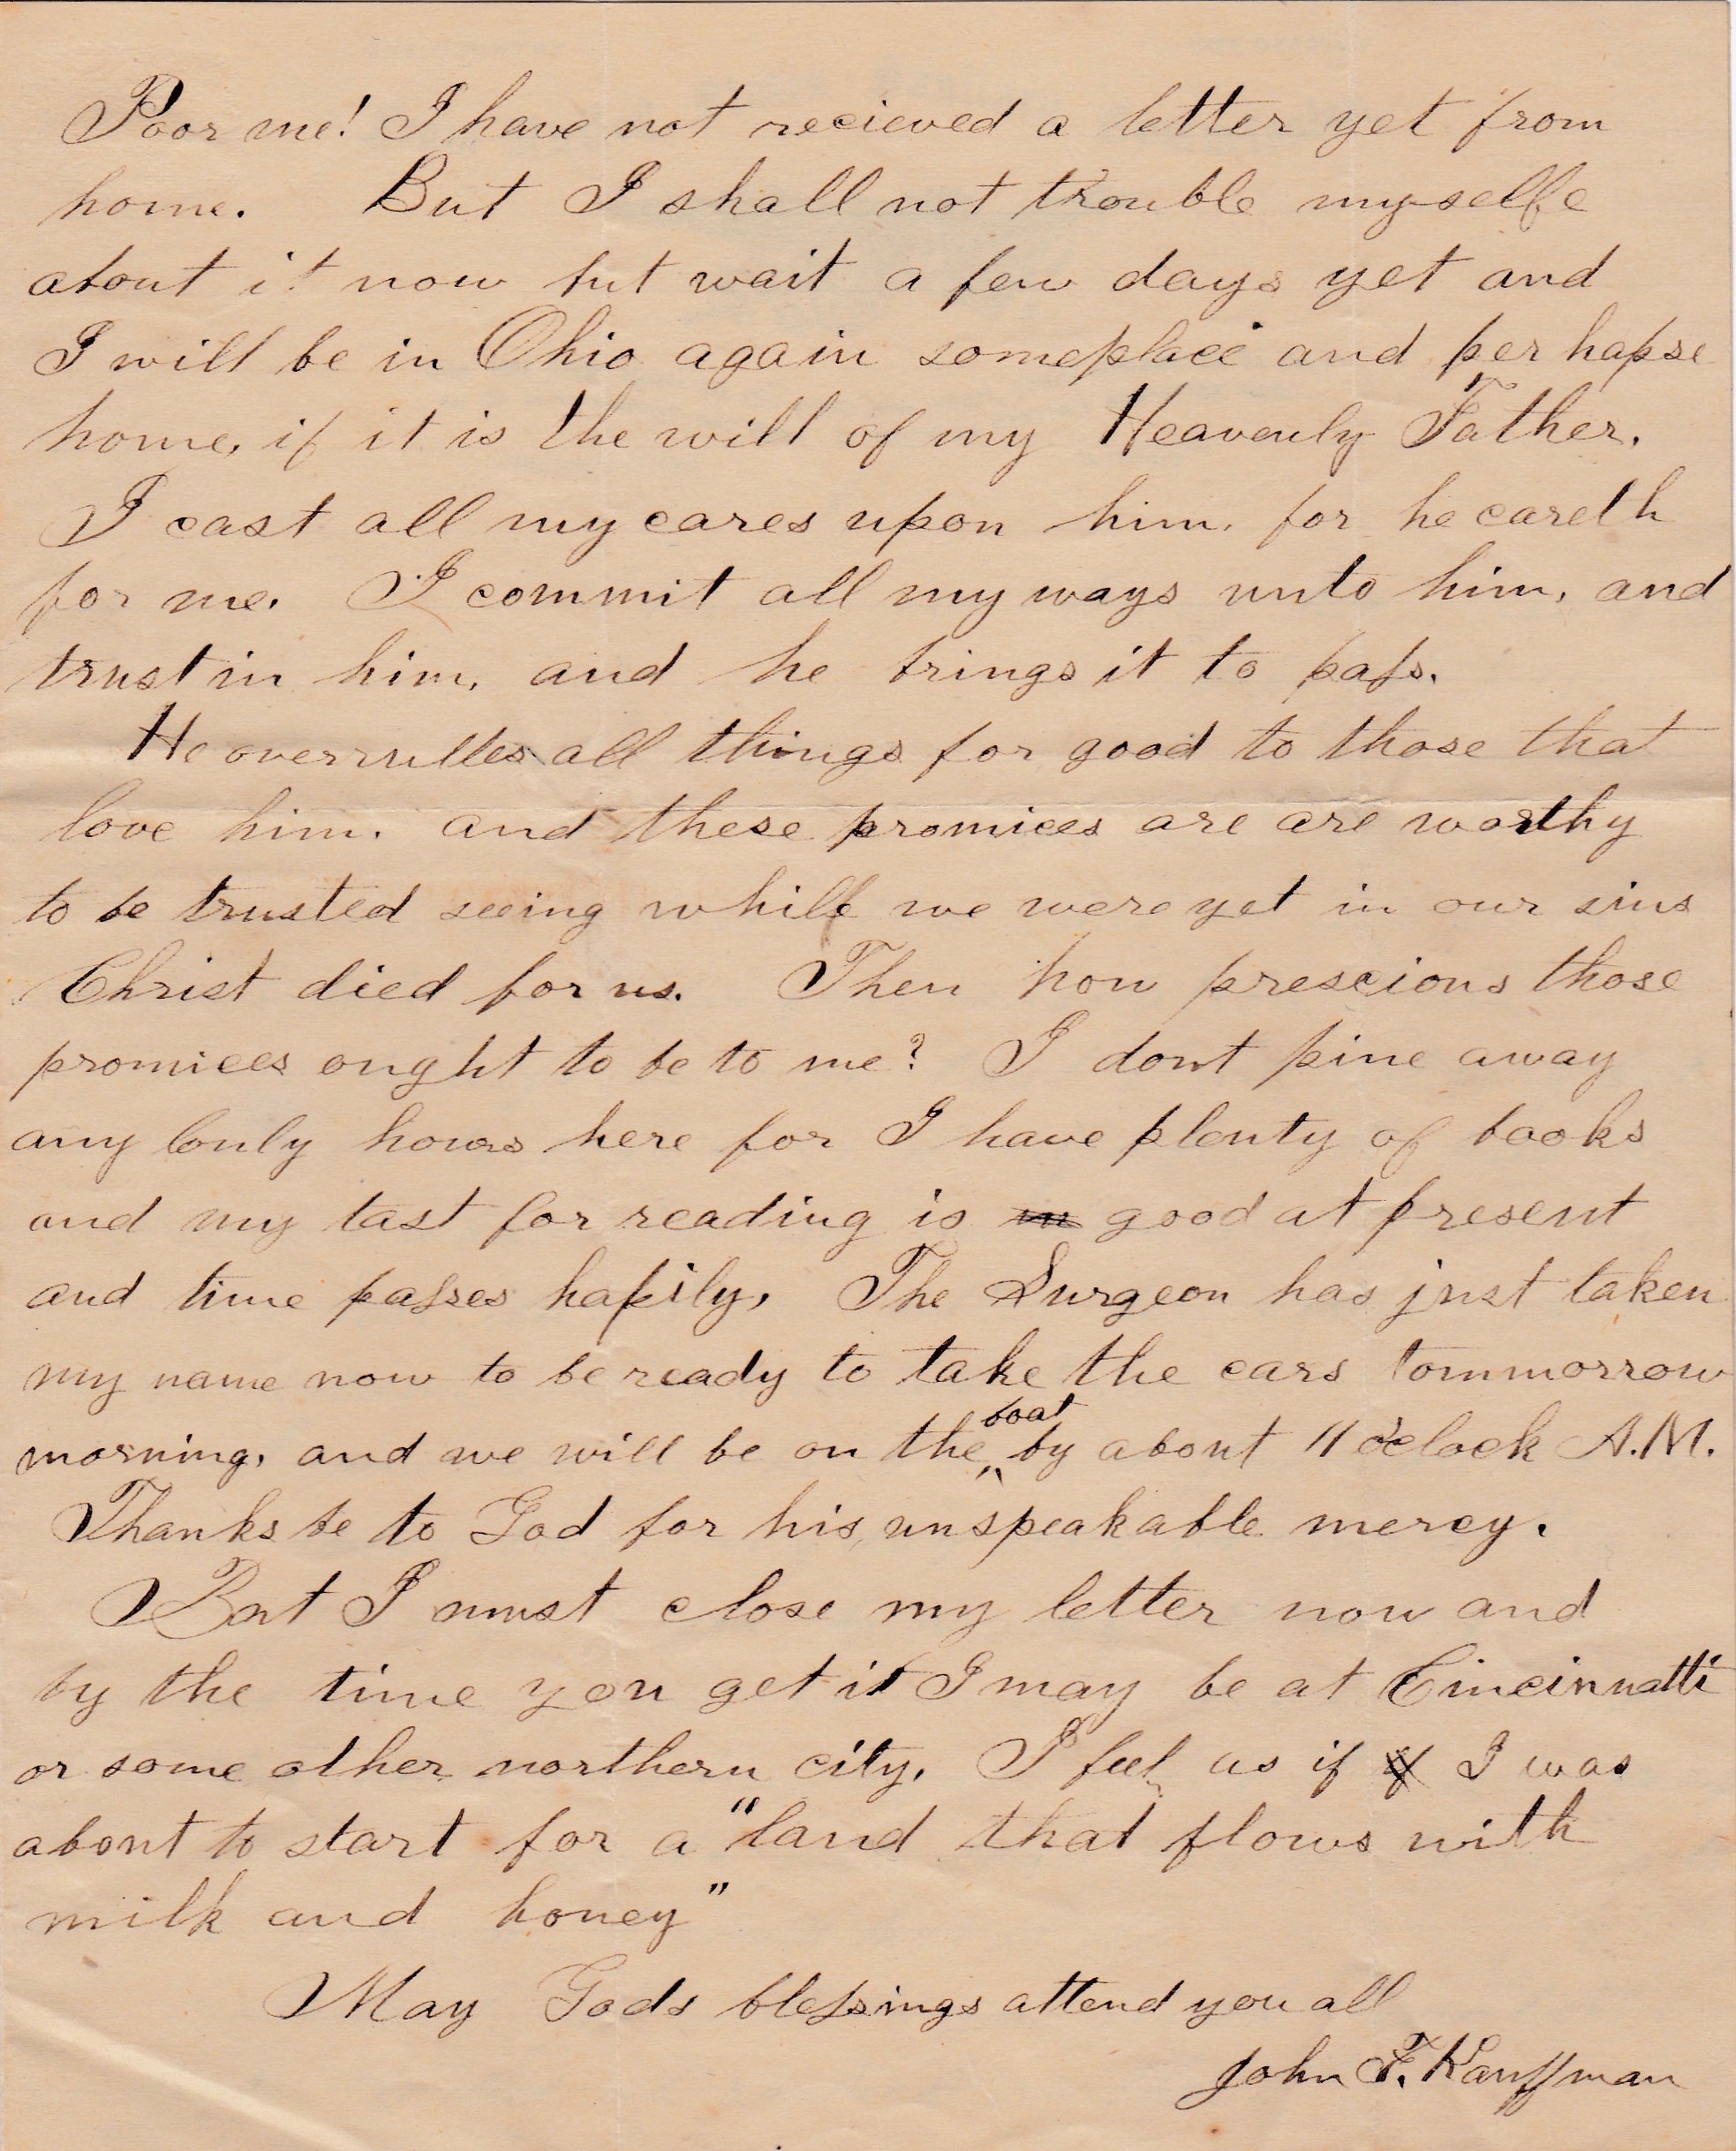 Poor me! I have not recieved a letter yet from
home. But I shall not trouble myselfe
about it now but wait a few days yet and
I will be in Ohio again someplace and per hapse
home, if it is the will of my Heavenly Father.
I cast all my cares upon him, for he careth
for me. I commit all my ways unto him, and
trust in him, and he brings it to paſs.
He overrulles all things for good to those that
love him. and these promices are are worthy
to be trusted seeing while we were yet in our sins
Christ died for us. Then how prescious those
promices ought to be to me? I dont pine away
any lonly hours here for I have plenty of books
and my tast for reading is good at present
and time paſses hapily, The Surgeon has just taken
my name now to be ready to take the cars tommorrow
morning, and we will be on the boat by about 11 o'clock A.M.
Thanks be to God for his unspeakable mercy.
But I must close my letter now and
by the time you get it I may be at Cincinnatti
or some other northern city. I feel as if if I was
about to start for a "land that flows with
milk and honey"
May Gods bleſsings attend you all
John F. Kauffman